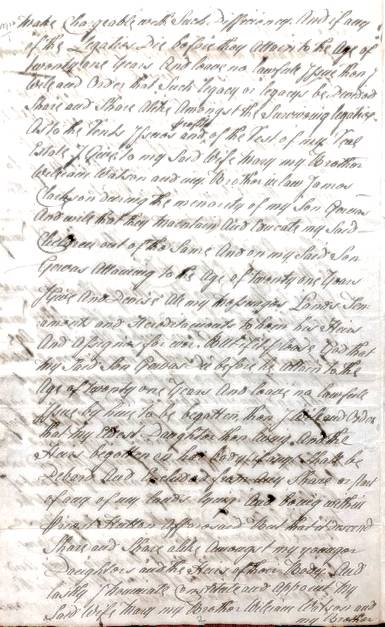 make Chargeable with Such Defficiency. And if any
of the Legatees Die before they Attain to the Age of
twenty one Years And leave no lawfull Issue then I
will and Order that Such legacy or legacys be Devided
Share and Share Alike Amongst the Surviving legatees
As to the Rents Issues and profitts of the Rest of my Real
Estate I Give to my Said Wife Mary my Brother
William Watson and my Brother in law James
Clarkson during the menority of my Son
And will that they maintain And Educate my Said
Children out of the Same And on my Said Son
Attaining to the Age of twenty one Years
I Give And Devise All my Messuages Lands Ten
aments and Hereditaments to him his Heirs
And Assigns for ever. But if it please God that
my Said Son die before he Attain to the
Age of twenty one Years And leave no lawfull
Issue by him to be begotten then I will and Order
that my Eldest Daughter then living And the
Heirs begotten of her Body Shall be
Debard And Secluded from Any Share or part
of any of my lands lying And being within
Aforesaid But that it descend
Share and Share alike Amongst my younger
Daughters and the Heirs of their Bodys And
lastly I nominate Constitute and Appoint my
Said Wife Mary my Brother William Watson and
my Brother